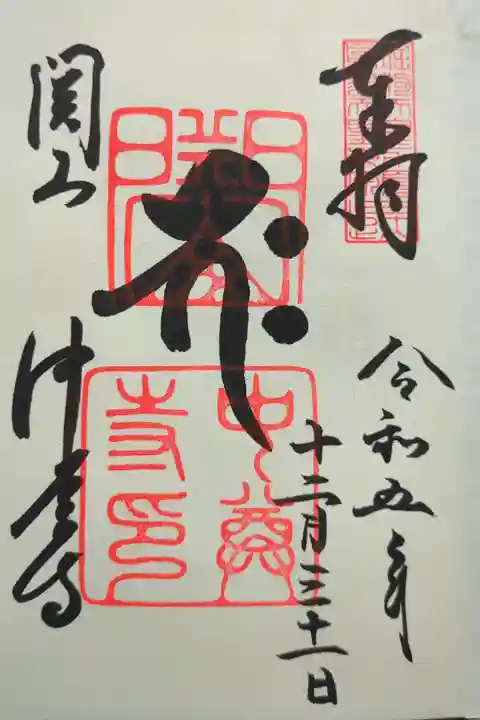 奉拝
令和五年
十二月三十一日
中尊
寺印
関山
中尊寺